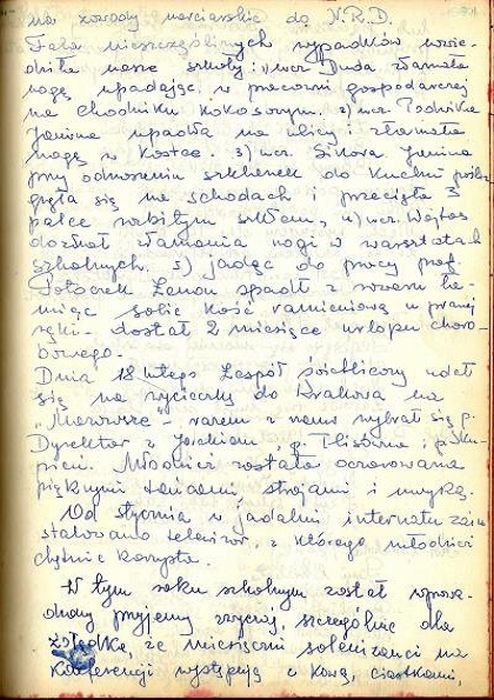 na zawody narciarskie do N.R.D.
Fala nieszczęśliwych wypadków nawie-
dziła nasze szkoły: 1) ucz. Duda złamała
nogę upadając w pracowni gospodarczej
na chodniku kokosowym. 2) ucz. Podnicka
Janina upadła na ulicy i złamała
nogę w kostce. 3) ucz. Sikora Janina
przy odnoszeniu szklanek do kuchni pośliz-
gnęła się na schodach i przecięła 3
palce rozbitym szkłem, 4) ucz. Wojtas
doznał złamania nogi w warsztatach
szkolnych. 5) jadąc do pracy prof.
Potoczek Zenon spadł z roweru ła-
miąc sobie kość ramieniową w prawej
ręki - dostał 2 miesiące urlopu choro-
bowego.
Dnia 18 lutego Zespół świetlicowy udał
się na wycieczkę do Krakowa na
"Mazowsze" - razem z nami wybrał się p.
Dyrektor z Jackiem, p. i p.
Młodzież została oczarowana
pięknymi tańcami, strojami i muzyką.
Od stycznia w jadalni internatu zain-
stalowano telewizor, z którego młodzież
chętnie korzysta.
W tym roku szkolnym został wprowa-
dzony przyjemny zwyczaj, szczególnie dla
żołądka, że miesięczni solenizanci na
konferencji występują z kawą, ciastkami,